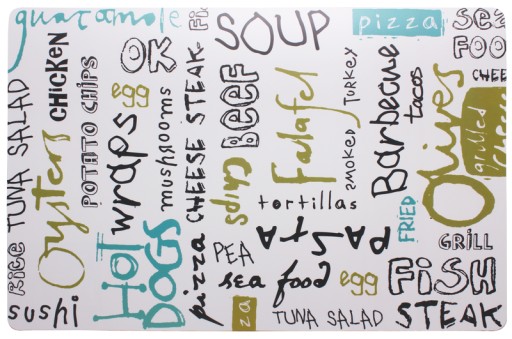 guacamole
SOUP
pizza
SEA
FOO
CHEE
OK
CHICKEN
POTATO CHIPS
egg
wraps
mushrooms
CHEESE STEAK
BEEF
Chips
Falafel
SMOKED TURKEY
Barbecue
tacos
Olives
grilled
cheese
TUNA SALAD
Rice
Oysters
HOT
DOGS
pizza
tortillas
PASTA
FRIED
GRILL
PEA
sea food
egg
FISH
sushi
za
TUNA SALAD
STEAK